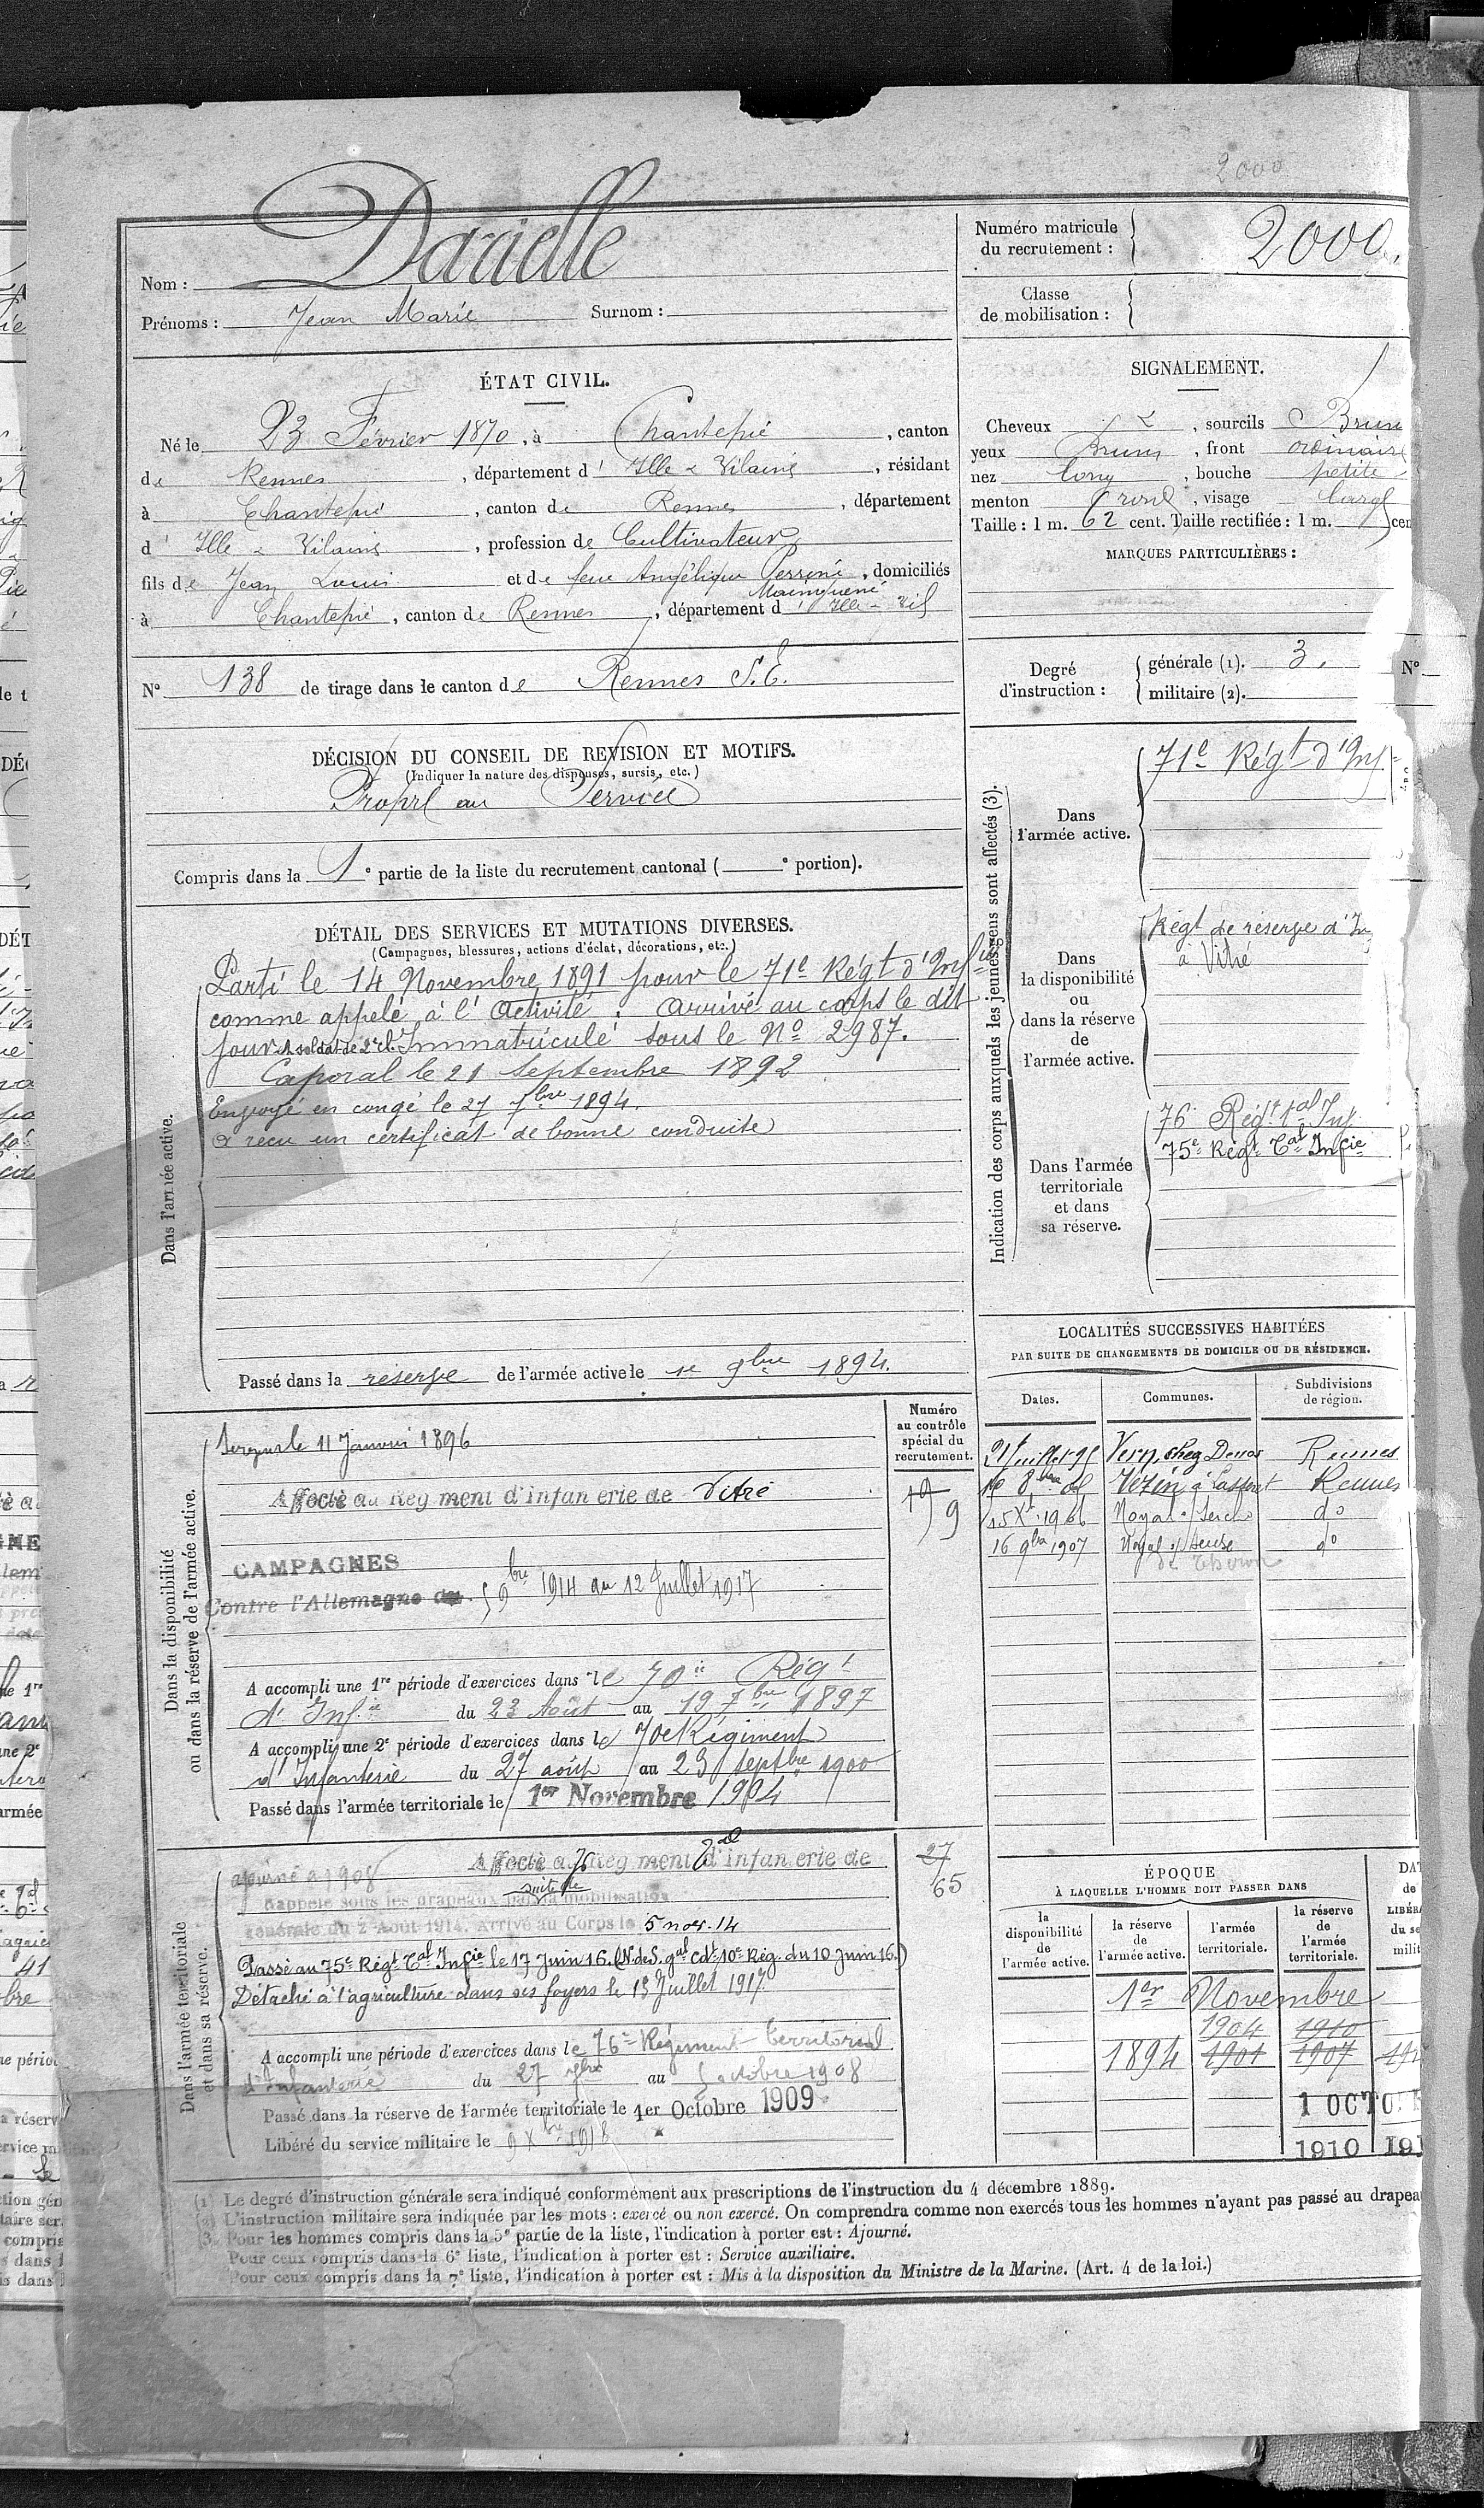 2000
Nom : Darielle
Prénoms : Jean Marie Surnom :
Numéro matricule du recrutement : 2000.
Classe de mobilisation :
ÉTAT CIVIL.
Né le 23 Février 1870, à Chantepie, canton
de Rennes, département d' Ille & Vilaine, résidant
à Chantepie, canton de Rennes, département
d' Ille & Vilaine, profession de Cultivateur
fils de Jean Louis et de feue Angélique Perrine, domiciliés
Mainguené
à Chantepie, canton de Rennes, département d' Ille - Vil
SIGNALEMENT.
Cheveux & , sourcils Bruns
yeux Bruns, front ordinaire
nez long, bouche petite
menton rond, visage large
Taille : 1 m. 62 cent. Taille rectifiée : 1 m. cen
MARQUES PARTICULIÈRES :
N° 138 de tirage dans le canton de Rennes S.E.
Degré d'instruction : générale (1). 3.
militaire (2).
N°
DÉCISION DU CONSEIL DE REVISION ET MOTIFS.
(Indiquer la nature des dispenses, sursis, etc.)
Propre au Service
Compris dans la 1e partie de la liste du recrutement cantonal ( e portion).
DÉTAIL DES SERVICES ET MUTATIONS DIVERSES.
(Campagnes, blessures, actions d'éclat, décorations, etc.)
Dans l'armée active.
Parti le 14 Novembre 1891 pour le 71e Régt d'Infie
comme appelé à l'activité. Arrivé au corps le dit
jour. A soldat de 2e cl. Immatriculé sous le No 2987.
Caporal le 21 Septembre 1892
Envoyé en congé le 27 7bre 1894.
a reçu un certificat de bonne conduite
Passé dans la réserve de l'armée active le 1e 9bre 1894.
Indication des corps auxquels les jeunes gens sont affectés (3).
Dans l'armée active.
71e Régt d'Inf
Dans la disponibilité ou dans la réserve de l'armée active.
Régt de réserve d'In
à Vitré
Dans l'armée territoriale et dans sa réserve.
76 Régt tal Inf
75e Régt Tal Infie
LOCALITÉS SUCCESSIVES HABITÉES
PAR SUITE DE CHANGEMENTS DE DOMICILE OU DE RÉSIDENCE.
Dates. Communes. Subdivisions de région.
Vern, chez Rennes
Vezin Rennes
15 Xt 1906 Noyal s/ Seiche do
16 9bre 1907 Noyal s/ Seiche do
Numéro au contrôle spécial du recrutement.
19
9
Dans la disponibilité ou dans la réserve de l'armée active.
le 11 Janvier 1896
Affecté au Régiment d'infanterie de Vitré
CAMPAGNES
Contre l'Allemagne du 5 9bre 1914 au 12 Juillet 1917
A accompli une 1re période d'exercices dans le 70e Régt
d'Infie du 23 Août au 19 7bre 1897
A accompli une 2e période d'exercices dans le 70e Régiment
d'Infanterie du 27 août au 23 septbre 1900
Passé dans l'armée territoriale le 1er Novembre 1904
Dans l'armée territoriale et dans sa réserve.
Affecté au 76 Régiment Tal d'infanterie de
27
65
ajourné à 1908
suite de
Rappelé sous les drapeaux par la mobilisation
générale du 2 Août 1914. Arrivé au Corps le 5 nov. 14
Passé au 75e Régt Tal Infie le 17 Juin 16. (N. de S. gal Cdt 10e Rég. du 10 Juin 16.)
Détaché à l'agriculture dans ses foyers le 13 Juillet 1917
A accompli une période d'exercices dans le 76e Régiment territorial
d'Infanterie du 27 7bre au 5 octobre 1908
Passé dans la réserve de l'armée territoriale le 1er Octobre 1909
Libéré du service militaire le 9 Xbre 1918
ÉPOQUE
À LAQUELLE L'HOMME DOIT PASSER DANS
la disponibilité de l'armée active.
la réserve de l'armée active.
l'armée territoriale.
la réserve de l'armée territoriale.
1er Novembre
1904 1910
1894 1901 1907
1 OCTO
1910 191
(1) Le degré d'instruction générale sera indiqué conformément aux prescriptions de l'instruction du 4 décembre 1889.
(2) L'instruction militaire sera indiquée par les mots : exercé ou non exercé. On comprendra comme non exercés tous les hommes n'ayant pas passé au drapea
(3) Pour les hommes compris dans la 5e partie de la liste, l'indication à porter est : Ajourné.
Pour ceux compris dans la 6e liste, l'indication à porter est : Service auxiliaire.
Pour ceux compris dans la 7e liste, l'indication à porter est : Mis à la disposition du Ministre de la Marine. (Art. 4 de la loi.)